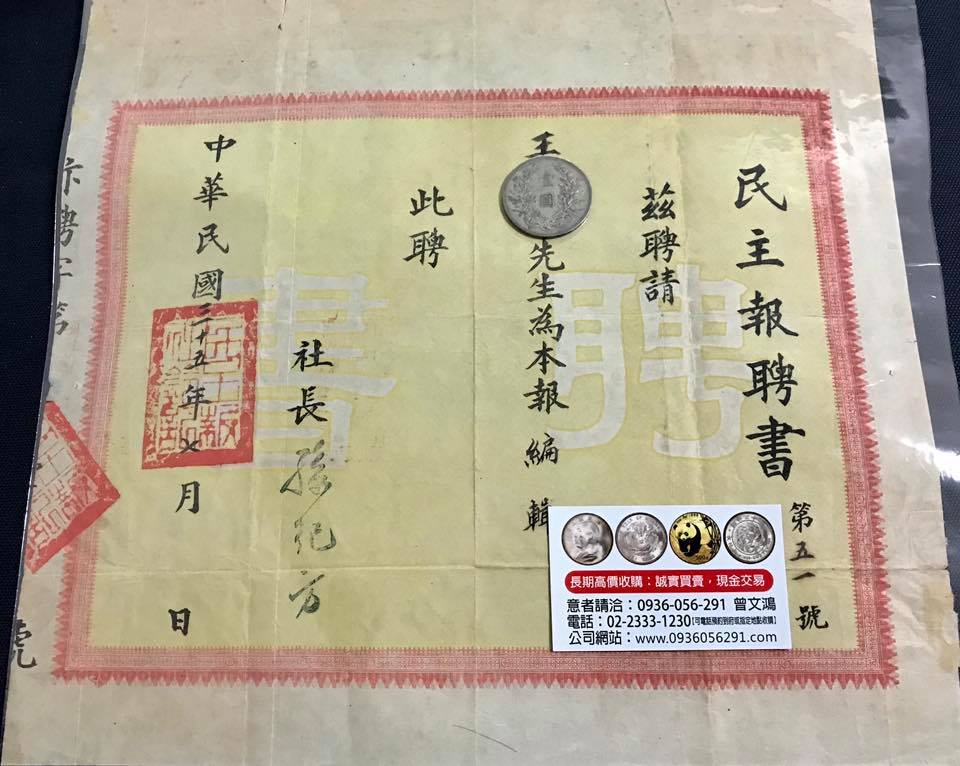 民主報聘書
第五一號
茲聘請
王
先生為本報編輯
此聘
社長
中華民國三十五年
月
日
聘書
壹圓
聘字第
號
長期高價收購：誠實買賣，現金交易
意者請洽：0936-056-291 曾文鴻
電話：02-2333-1230【可電話預約到府或指定地點收購】
公司網站：www.0936056291.com